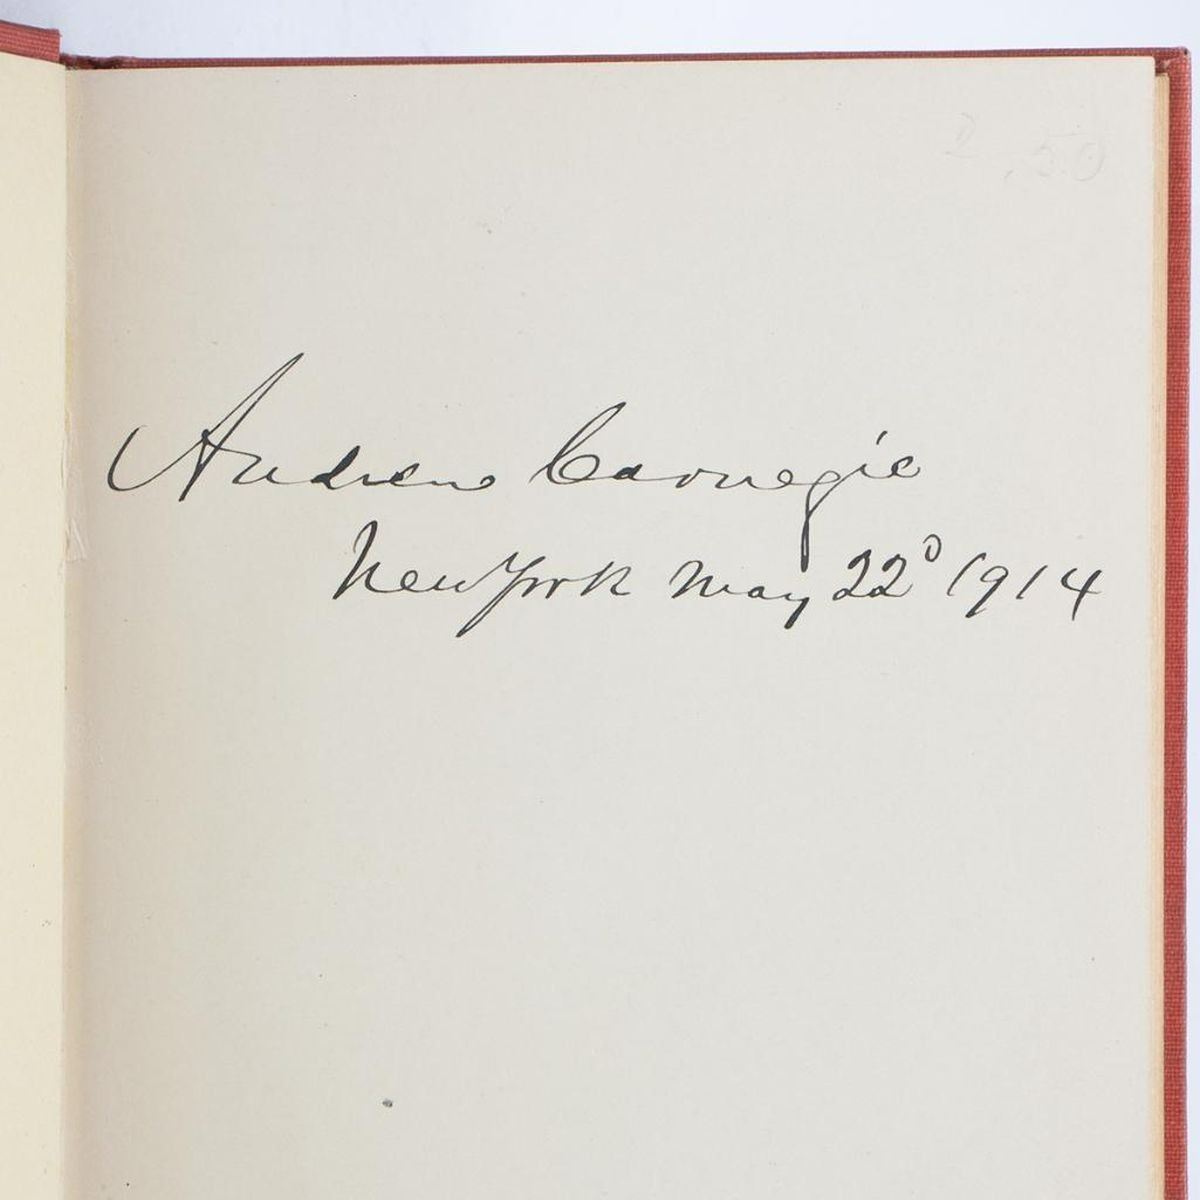 Andrew Carnegie
New York May 22ᴰ 1914